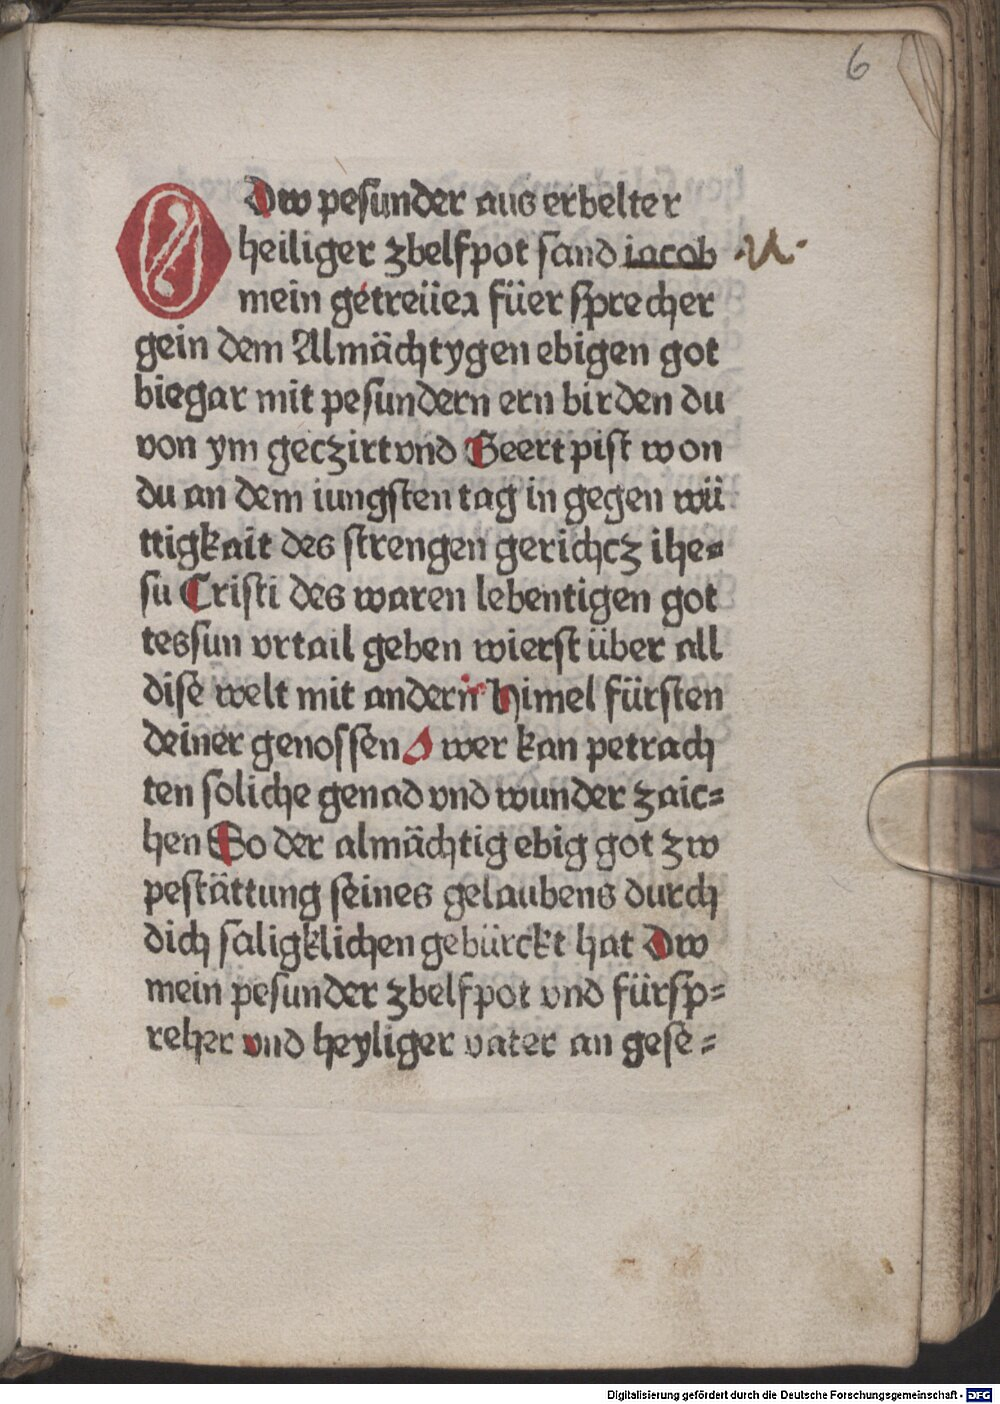 6
O Dw pesunder aus erbelter
heiliger zbelfpot sand iacob ·N·
mein getreüer füer sprecher
gein dem Almächtygen ebigen got
biegar mit pesundern ern birden du
von ym geczirt vnd Geert pist won
du an dem iungsten tag in gegen wü
rtigkait des strengen gerichcz ihe=
su Cristi des waren lebentigen got
tes sun vrtail geben wierst über all
dise welt mit andern himel fürsten
deiner genossen O wer kan petrach
ten soliche genad vnd wunder zaic=
hen So der almächtig ebig got zw
pestättung seines gelaubens durch
dich saligklichen gebürckt hat Dw
mein pesunder zbelfpot vnd fürsp=
reher vnd heyliger vater an gese=
Digitalisierung gefördert durch die Deutsche Forschungsgemeinschaft - DFG